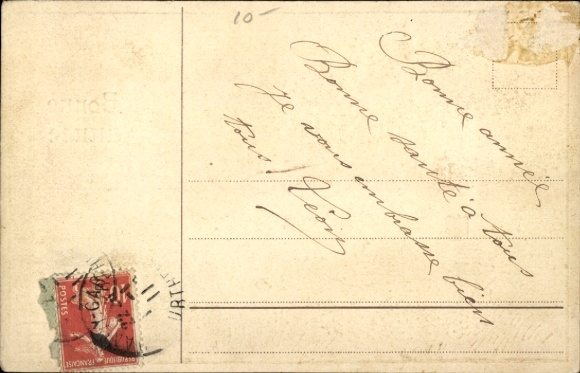 10-
Bonne année
Bonne santé à tous
Je vous embrasse bien
tous!
Bonne
Année
POSTES
REPUBLIQUE FRANÇAISE